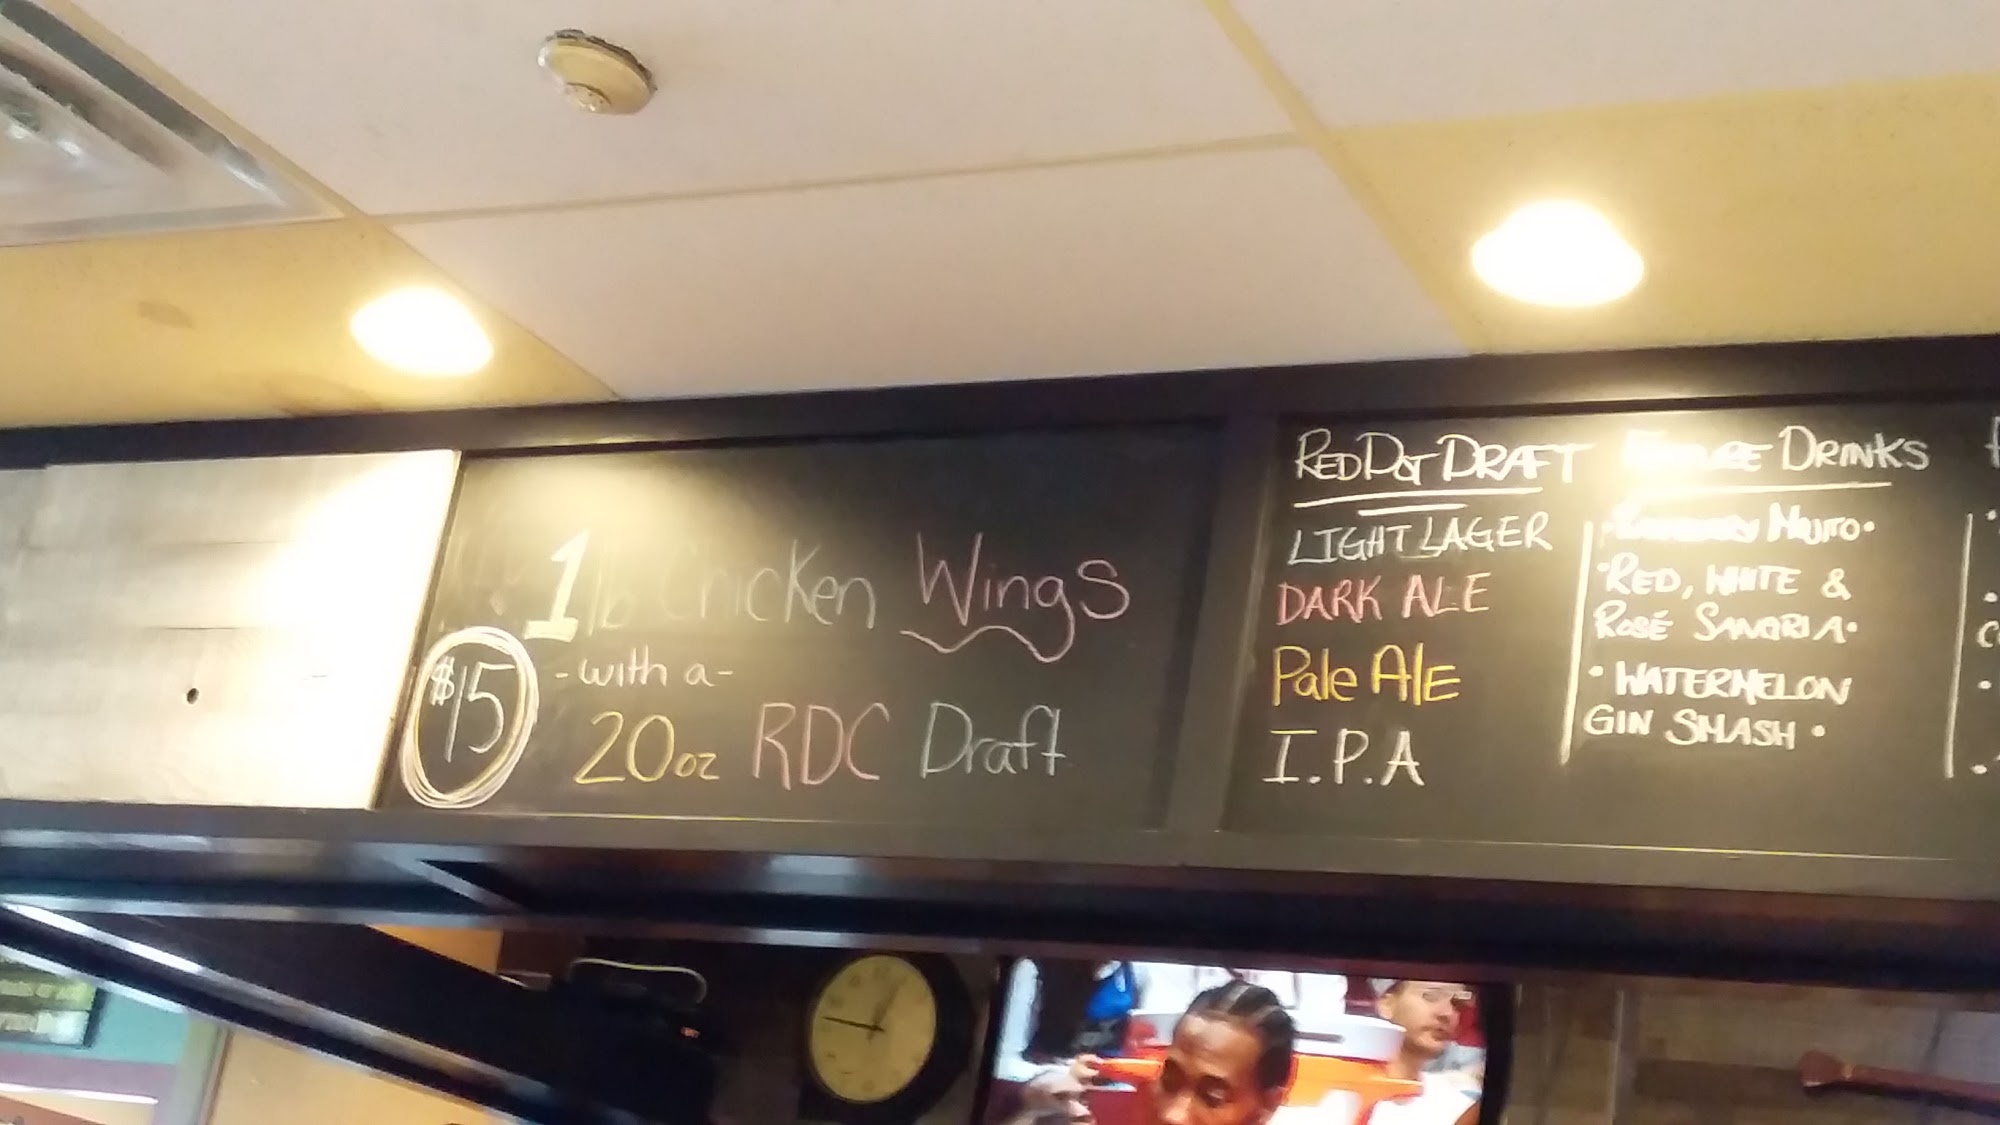 1lb Chicken Wings
$15
-with a-
20oz RDC Draft
RED DOT DRAFT
LIGHT LAGER
DARK ALE
Pale AlE
I.P.A
DRINKS
MOJITO•
•RED, WHITE &
ROSÉ SANGRIA•
• WATERMELON
GIN SMASH •